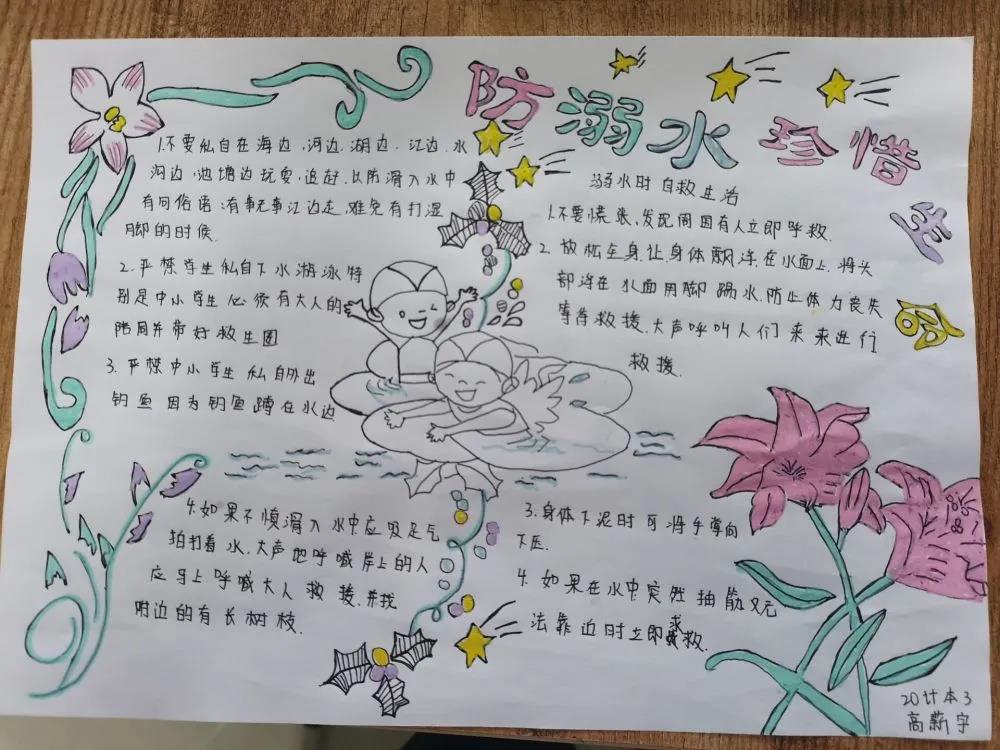 防溺水 珍惜生命
1.不要私自在海边.河边.湖边.江边.水
沟边,池塘边玩耍,追赶.以防滑入水中
有句俗语:有事无事江边走,难免有打湿
脚的时候.
2.严禁学生私自下水游泳特
别是中小学生必须有大人的
陪同并带好救生圈
3.严禁中小学生私自外出
钓鱼因为钓鱼蹲在水边
4.如果不慎滑入水中.应吸足气
拍打着水.大声地呼喊岸上的人
应马上呼喊大人救援.并找
附边的有长树枝.
溺水时自救生活
1.不要慌张,发现周围有人立即呼救.
2.放松全身.让身体飘浮在水面上.将头
部浮在水面用脚踢水.防止体力丧失
等待救援.大声呼叫人们来来进行
救援.
3.身体下泥时可将手掌向
下压.
4.如果在水中突然抽筋.又元
法靠近时立即求救.
20计本3
高薪宇